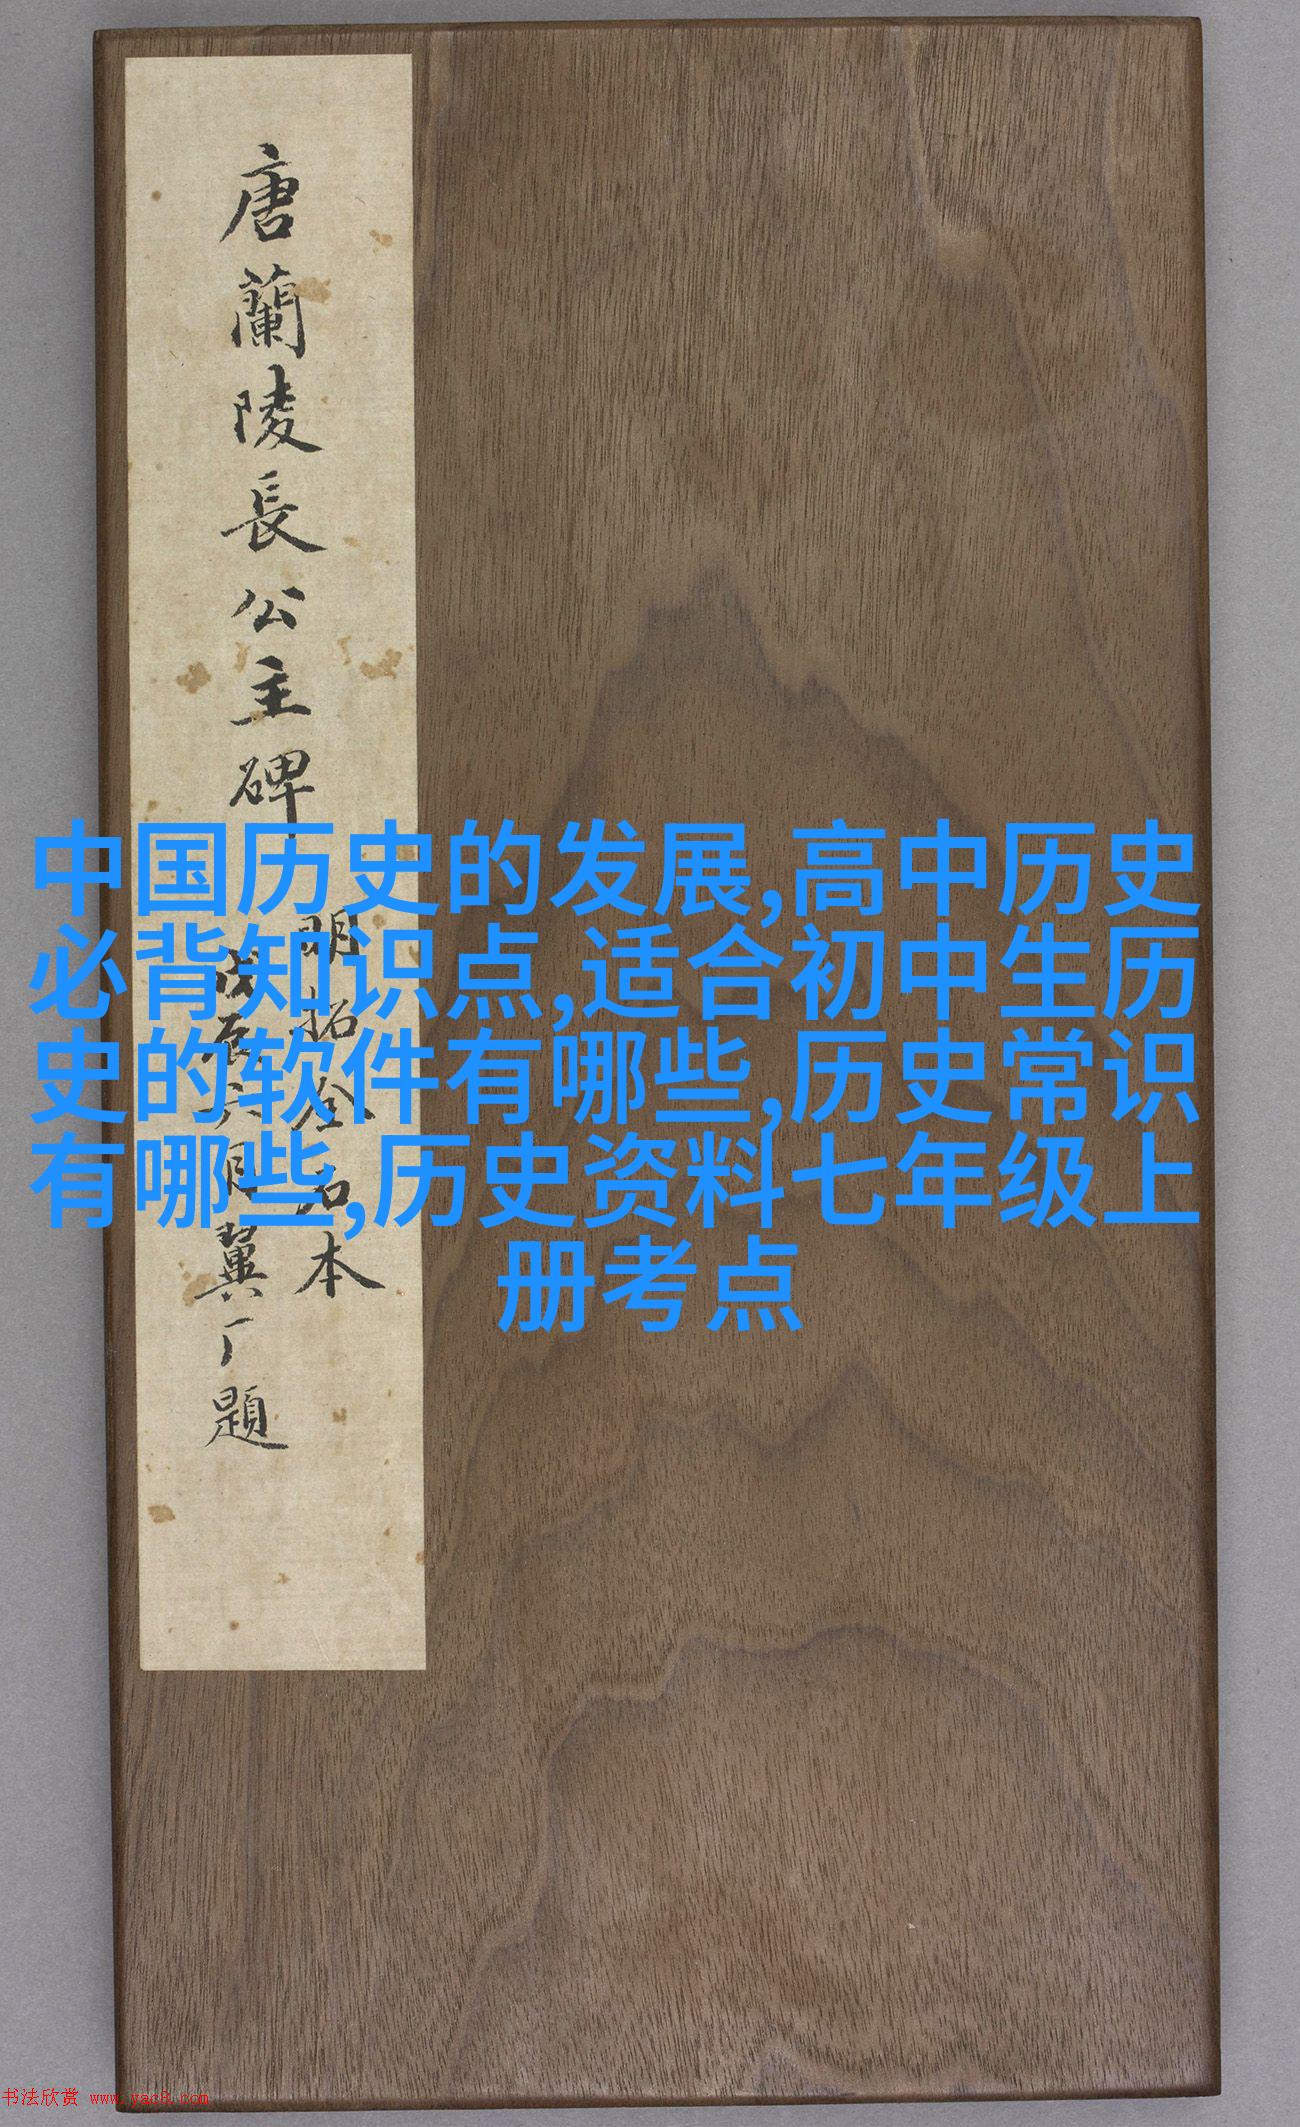 唐蘭陵長公主碑
明拓全石本
戊辰六月翼厂題
中国历史的发展,高中历史
必背知识点,适合初中生历
史的软件有哪些,历史常识
有哪些,历史资料七年级上
册考点
书法欣赏 www.yac8.com